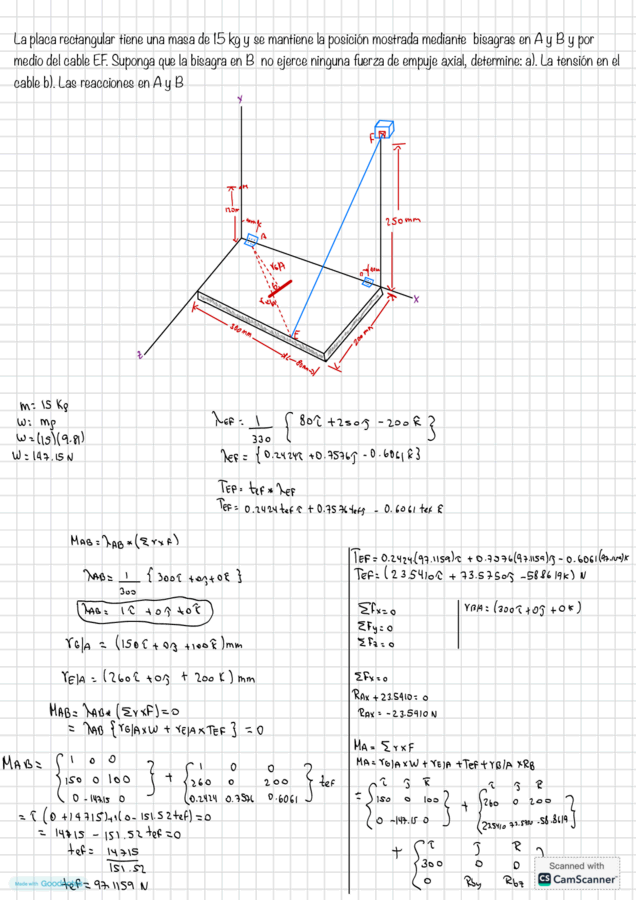 La placa rectangular tiene una masa de 15 kg y se mantiene la posición mostrada mediante bisagras en A y B y por
medio del cable EF. Suponga que la bisagra en B no ejerce ninguna fuerza de empuje axial, determine: a). La tensión en el
cable b). Las reacciones en A y B
Y
F
250mm
A
rG/A
X
E
300mm
200mm
Z
m= 15 Kg
W= mg
W=(15)(9.81)
W=147.15N
λEF= 1/330 {80î+250ĵ-200k̂}
λEF= {0.2424î+0.7576ĵ-0.6061k̂}
TEF= tEF*λEF
TEF=0.2424tEFî+0.7576tEFĵ-0.6061tEFk̂
MAB=λAB*(Σr×F)
λAB= 1/300 {300î+0ĵ+0k̂}
λAB= 1î+0ĵ+0k̂
rG/A = (150î+0ĵ+100k̂)mm
rE/A=(260î+0ĵ+200k̂)mm
MAB=λAB*(Σr×F)=0
=λAB{rG/A×W+rE/A×TEF}=0
MAB= {1 0 0
150 0 100
0 -147.15 0} + {1 0 0
260 0 200
0.2424 0.7576 0.6061} tEF
=î(0+14715)+1(0-151.52tEF)=0
= 14715-151.52tEF=0
tEF= 14715/151.52
tEF=97.1159 N
TEF=0.2424(97.1159)î+0.7576(97.1159)ĵ-0.6061(97.1159)k
TEF=(23.5410î+73.5750ĵ-58.8619k)N
ΣFx=0
ΣFy=0
ΣFz=0
rB/A=(300î+0ĵ+0k)
ΣFx=0
RAx+23.5410=0
RAx=-23.5410N
MA=Σr×F
MA=rG/A×W+rE/A+TEF+rB/A×RB
= {î ĵ k̂
150 0 100
0 -147.15 0} + {î ĵ k̂
260 0 200
23.5410 73.5750 -58.8619}
+ {î ĵ k̂
300 0 0
0 RBy RBz
Made with Goodnotes
Scanned with
CS CamScanner